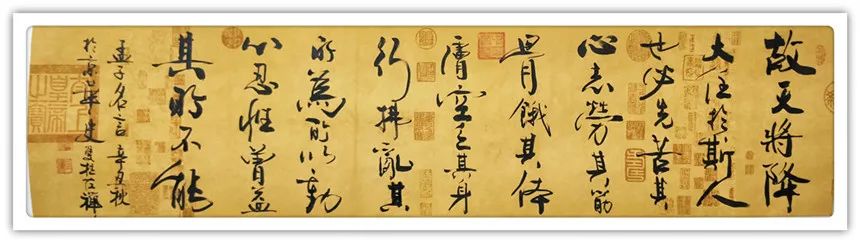 故天將降
大任於斯人
也必先苦其
心志勞其筋
骨餓其体
膚空乏其身
行拂亂其
所為所以動
心忍性曾益
其所不能
孟子名言 辛丑秋
於京華